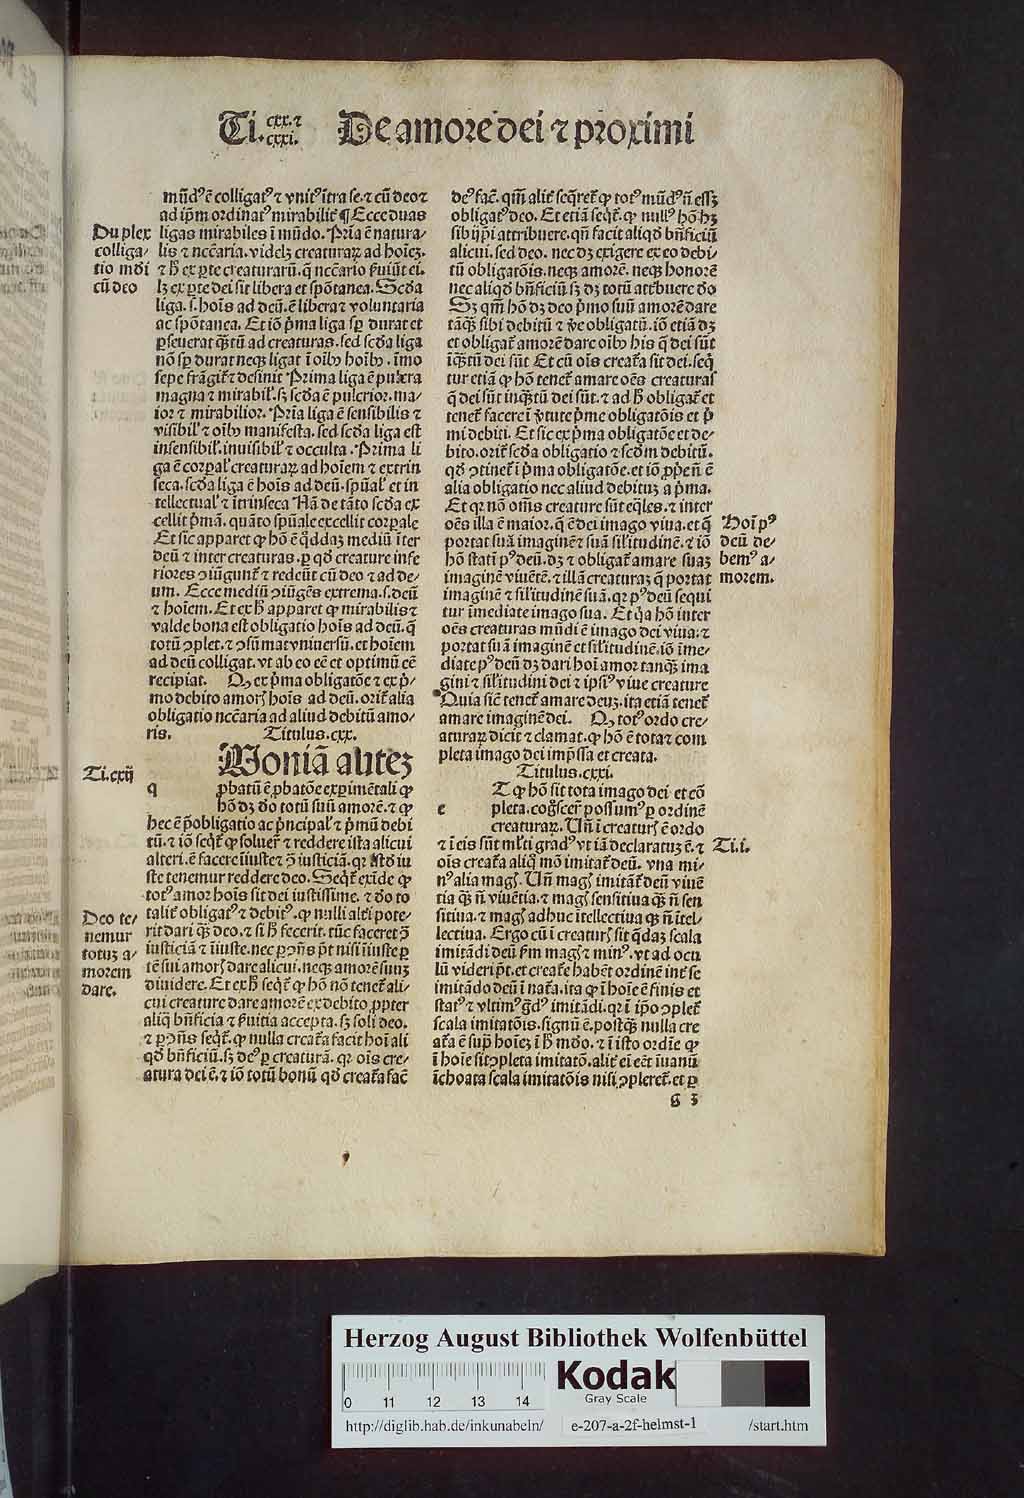 Ti. cxx. ⁊ cxxi. De amore dei ⁊ proximi
mūdꝰ ē colligatꝰ ⁊ vnitꝰ ītra se. ⁊ cū deo ⁊
ad ip̄m ordinatꝰ mirabilit̄ ¶ Ecce duas
ligas mirabiles ī mūdo. Pria ē natura-
lis ⁊ nccāria. videlꝫ creaturaꝝ ad hoīeꝫ.
⁊ ꝑseuerat qͣꝫtū ad creaturas. sed scďa liga
nō sꝑ durat neqꝫ ligat ī oībꝰ hoībꝰ. īmo
sepe frāgit̄ ⁊ desinit Prima liga ē pulcra
magna ⁊ mirabilꝰ. sꝫ scďa ē pulcrior. ma-
ior ⁊ mirabilior. Pria liga ē sensibilis ⁊
visibilꝰ ⁊ oībꝰ manifesta. sed scďa liga est
insensibilꝰ. inuisibilꝰ ⁊ occulta. Prima li
ga ē corꝑalꝰ creaturaꝝ ad hoīem ⁊ extrin
seca. scďa liga ē hoīs ad deū. spūalꝰ et in
tellectualꝰ ⁊ ītrinseca Nā de tāto scďa ex
cellit pͥmā. quāto spūale excellit corꝑale
Et sic apparet ꝙ hō ē qͥddaꝫ mediū īter
deū ⁊ inter creaturas. ꝑ qď creature infe
riores ↄiūgunt̄ ⁊ redeūt cū deo ⁊ ad de-
um. Ecce mediū ↄiūgēs extrema. s. deū
⁊ hoīem. Et ex h̄ apparet ꝙ mirabilis ⁊
valde bona est obligatio hoīs ad deū. q̄
totū ↄplet. ⁊ ↄsūmat vniuersū. et hoīem
ad deū colligat. vt ab eo eē et optimū eē
recipiat. Qꝙ ex pͥma obligatōe ⁊ ex pͥ-
mo debito amorꝭ hoīs ad deū. orit̄ alia
obligatio nccāria ad aliud debitū amo-
ris. Titulus. cxx.
Moniā auteꝫ
q ꝓbatū ē ꝓbatōe exꝑimētali ꝙ
hō dꝫ ďo totū suū amorē. ⁊ ꝙ
hec ē pͥ obligatio ac pͥncipalꝰ ⁊ pͥmū debi
tū. ⁊ iō seqͥt̄ ꝙ soluer̄ ⁊ reddere ista alicui
alteri. ē facere īiuste ⁊ ↄ̄ iusticiā.
ste tenemur reddere deo. Seqͥt̄ exīde ꝙ
totꝰ amor hoīs sit dei iustissime. ⁊ ďo to
talit̄ obligatꝰ ⁊ debitꝰ. ꝙ nulli alt̄i pote-
rit dari qͣꝫ deo. ⁊ si h̄ fecerit. tūc faceret ↄ̄
iusticiā ⁊ īiuste. nec ꝑ ↄn̄s pōt nisi īiuste ꝑ
tē sui amorꝭ dare alicui. neqꝫ amorē suuꝫ
diuidere. Et ex h̄ seqͥt̄ ꝙ hō nō tenet̄ ali-
cui creature dare amorē ex debito ꝓpter
aliqͣ bn̄ficia ⁊ ẜuitia accepta. sꝫ soli deo.
⁊ ꝑ ↄn̄s seqͥt̄. ꝙ nulla creat̄a facit hoī ali
qď bn̄ficiū. sꝫ deꝰ ꝑ creaturā. qꝛ oīs cre-
atura dei ē. ⁊ iō totū bonū qď creat̄a facē
Duplex
colliga-
tio mūdi
cū deo
Ti. cxij
Deo te-
nemur
totuꝫ a-
morem
dare.
deꝰ facē. qm̄ alit̄ seq̄ret̄ ꝙ totꝰ mūdꝰ n̄ essꝫ
obligatꝰ deo. Et etiā seqͥt̄. ꝙ nullꝰ hō hꝫ
sibijpͥi attribuere. qn̄ facit aliqď bn̄ficiū
alicui. sed deo. nec dꝫ exigere ex eo debi-
tū obligatōis. neqꝫ amorē. neqꝫ honorē
nec aliqď bn̄ficiū sꝫ dꝫ totū attribuere ďo
Sꝫ qm̄ hō dꝫ deo pͥmo suū amorē dare
tāqͣꝫ sibi debitū ⁊ v̄e obligatū. iō etiā dꝫ
et obligat̄ amorē dare oībꝰ his q̄ dei sūt
īqͣꝫtū dei sūt Et cū oīs creat̄a sit dei. seqͥ
tur etiā ꝙ hō tenet̄ amare oēs creaturas
q̄ dei sūt inqͣꝫtū dei sūt. ⁊ ad h̄ obligat̄ et
tenet̄ facere ī v̄tute pͥme obligatōis et pͥ
mi debiti. Et sic ex pͥma obligatōe et de-
bito. orit̄ scďa obligatio ⁊ scďm debitū.
qď ↄtinet̄ ī pͥma obligatōe.
alia obligatio nec aliud debituꝫ a pͥma.
Et qꝛ nō oēs creature sūt eq̄les. ⁊ inter
oēs illa ē maior. q̄ ē dei imago viua. et q̄
portat suā imaginē ⁊ suā silitudinē. ⁊ iō
hō statī pꝰ deū. dꝫ ⁊ obligat̄ amare suaꝫ
imaginē viuētē. ⁊ illā creaturaꝫ q̄ portat
imaginē ⁊ silitudinē suā. qꝛ pꝰ deū sequi
tur īmediate imago sua. Et qͥa hō inter
oēs creaturas mūdi ē imago dei viua. ⁊
portat suā imaginē et silitudinē. iō īme-
diate pꝰ deū dꝫ dari hoī amor tanqͣꝫ ima
gini ⁊ silitudini dei ⁊ ipsiꝰ viue creature
Quia sic̄ tenet̄ amare deuꝫ. ita etiā tenet̄
amare imaginē dei. Qꝙ totꝰ ordo cre-
aturaꝝ dicit ⁊ clamat. ꝙ hō ē tota ⁊ com
pleta imago dei imp̄ssa et creata.
Titulus. cxxi.
e T ꝙ hō sit tota imago dei et cō
pleta. cog̊scer̄ possumꝰ ꝑ ordinē
creaturaꝝ. Un̄ ī creaturꝭ ē ordo
⁊ ī eis sūt ml̄ti gradꝰ vt iā declaratuꝫ ē. ⁊
oīs creat̄a aliqͦ mō imitat̄ deū. vna mi-
nꝰ alia magꝭ. Un̄ magꝭ imitāt̄ deū viuē
tia qͣꝫ n̄ viuētia. ⁊ magꝭ sensitiua qͣꝫ n̄ sen
sitiua. ⁊ magꝭ adhuc ītellectiua qͣꝫ n̄ ītel-
lectiua. Ergo cū ī creaturꝭ sit qͣdaꝫ scala
imitādi deū ẜm magꝭ ⁊ minꝰ. vt ad ocu
lū videri pōt. et creat̄e habēt ordinē int̄ se
imitādo deū ī nat̄a. ita ꝙ ī hoīe ē finis et
statꝰ ⁊ vltimꝰ gͣdꝰ imitādi. qꝛ ī ip̄o ↄplet̄
scala imitatōis. signū ē. postqͣꝫ nulla cre
at̄a ē supͣ hoīeꝫ ī h̄ mūdo. ⁊ ī isto ordīe ꝙ
ī hoīe sit ↄpleta imitatō. alit̄ ei eēt ī vanū
īchoata scala imitatōis nisi ↄpleret̄. et ꝑ
Hoīꝫ pꝰ
deū de-
bemꝰ a-
morem.
Ti. i.
G 3
Herzog August Bibliothek Wolfenbüttel
0 11 12 13 14
Kodak
Gray Scale
http://diglib.hab.de/inkunabeln/ e-207-a-2f-helmst-1 /start.htm